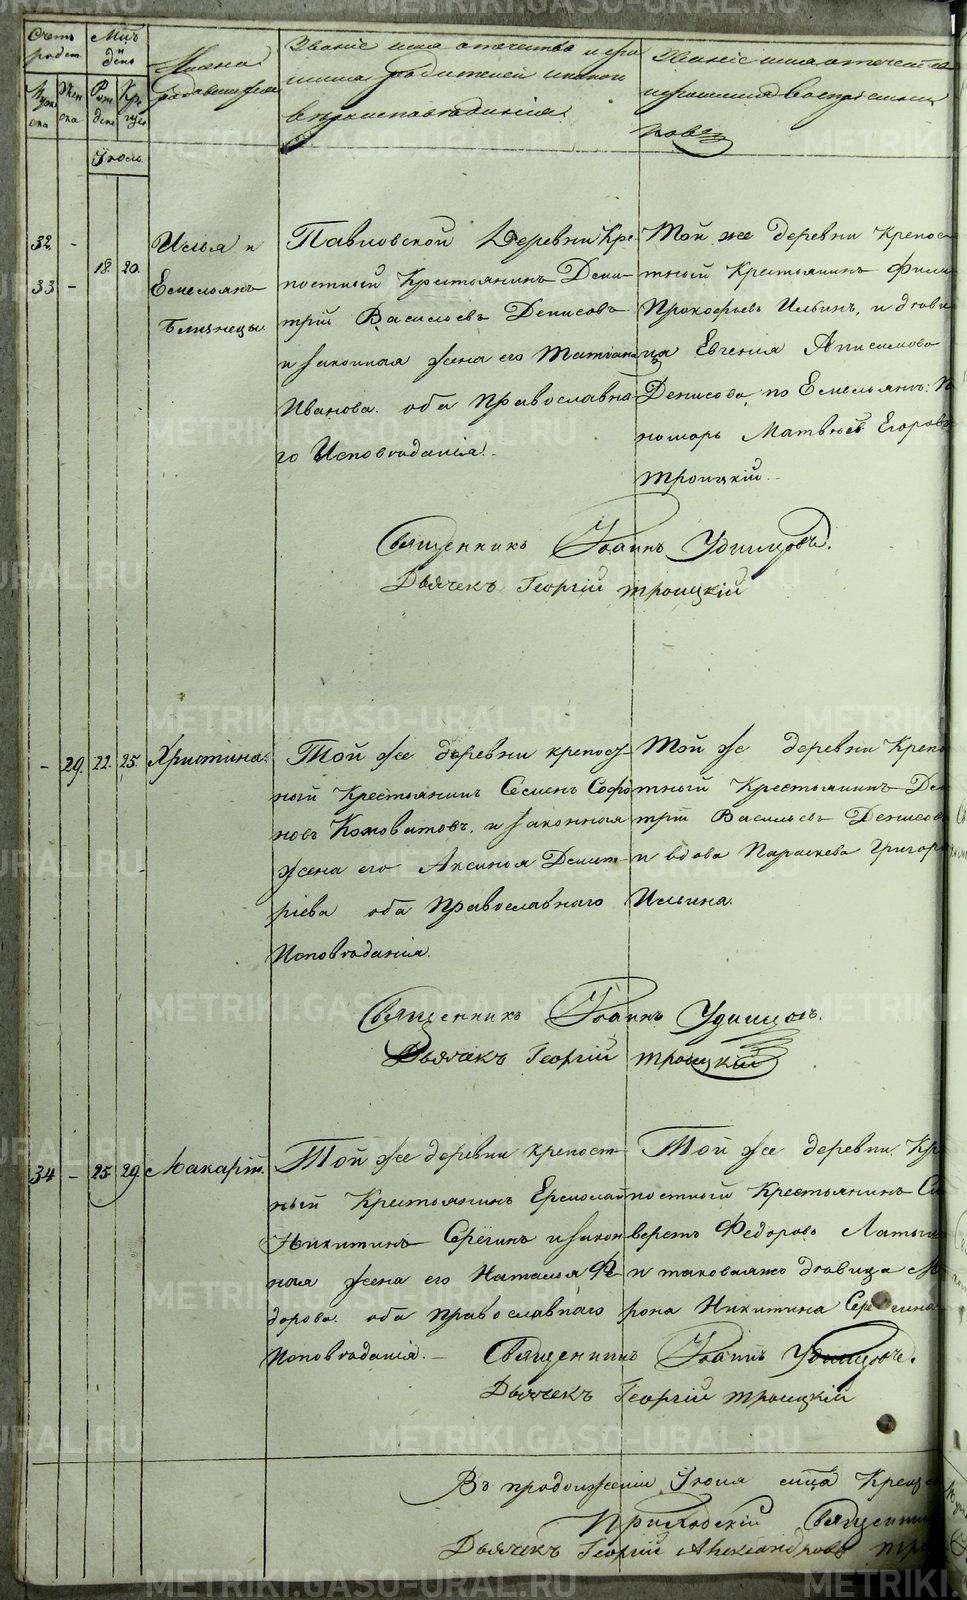 Счетъ родив. Мцъ и день
Имена родившихся
Званіе имя отечество и фамилія родителей и какого вѣроисповѣданія.
Званіе имя отечество и фамилія воспріемниковъ
Муж. ска Жен. ска Рож. денія Кре. щенія
Іюль.
32. - 33 - 18. 20.
Илья и Емельянъ Близнецы.
Павловской Деревни Кре-
постный Крестьянинъ Дми-
трій Васильевъ Денисовъ
и законная жена его Татіана
Иванова. оба Православна-
го Исповѣданія.
Той же деревни крепос-
тный Крестьянинъ Фили
Прокофьевъ Ильинъ, и дѣви-
ца Евгенія Анисимова
Денисова, по Емельянѣ: По
номарь Матвѣй Егоровъ
Троицкій.
Священникъ Іоаннъ Удинцовъ.
Дьячекъ Георгій Троицкій
- 29. 22. 25. Христина.
Той же деревни крепост-
ный Крестьянинъ Семенъ Софо-
новъ Коноватовъ, и законная
жена его Аксинья Дмит-
ріева оба Православнаго
Исповѣданія.
Той же деревни Крепо
тный Крестьянинъ Дми
трій Васильевъ Денисовъ
и вдова Параскева Григорь
Ильина.
Священникъ Іоаннъ Удинцовъ.
Дьячекъ Георгій Троицкій
34 - 25 29. Макарій.
Той же деревни крепост-
ный Крестьянинъ Ермолай
Никитинъ Серёгинъ и закон-
ная жена его Наталья Фе-
дорова. оба православнаго
Исповѣданія. -
Той же деревни, Кре
постный Крестьянинъ Са
веретъ Федоровъ Латы
и таковаяжъ дѣвица М
рона Никитина Серегина
Священникъ Іоаннъ Удинцовъ.
Дьячекъ Георгій Троицкій
Въ продолженіи Іюля мца Креще
Приходскій Священник
Дьячекъ Георгій Александровъ Тро
METRIKI.GASO-URAL.RU